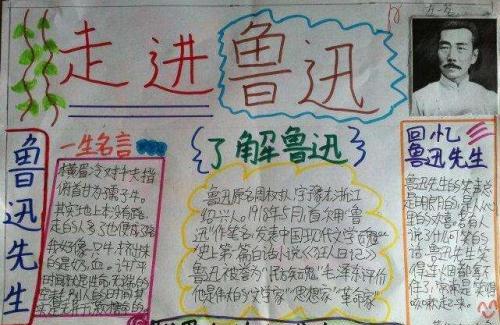 走进鲁迅
鲁迅先生
一生名言
横眉冷对千夫指
俯首甘为孺子牛。
其实地上本没有路,
走的人多了也便成了路
我好像一只牛,挤出来
的是奶,血。
时间就是性命,无端的
了解鲁迅
鲁迅原名周树人,字豫才,浙江
绍兴人。1918年5月,首次用“鲁
迅”作笔名,发表中国现代文学
史上第一篇白话小说《狂人日记》
鲁迅被誉为“民族魂”毛泽东评价
他是伟大的文学家“思想家”革命家
回忆
鲁迅先生
鲁迅先生的笑声总
是明朗的,是从心
里的欢喜。若有人
说了什么可笑的
话,鲁迅先生笑
得连烟都拿不
住了,常常是笑得
咳嗽起来。